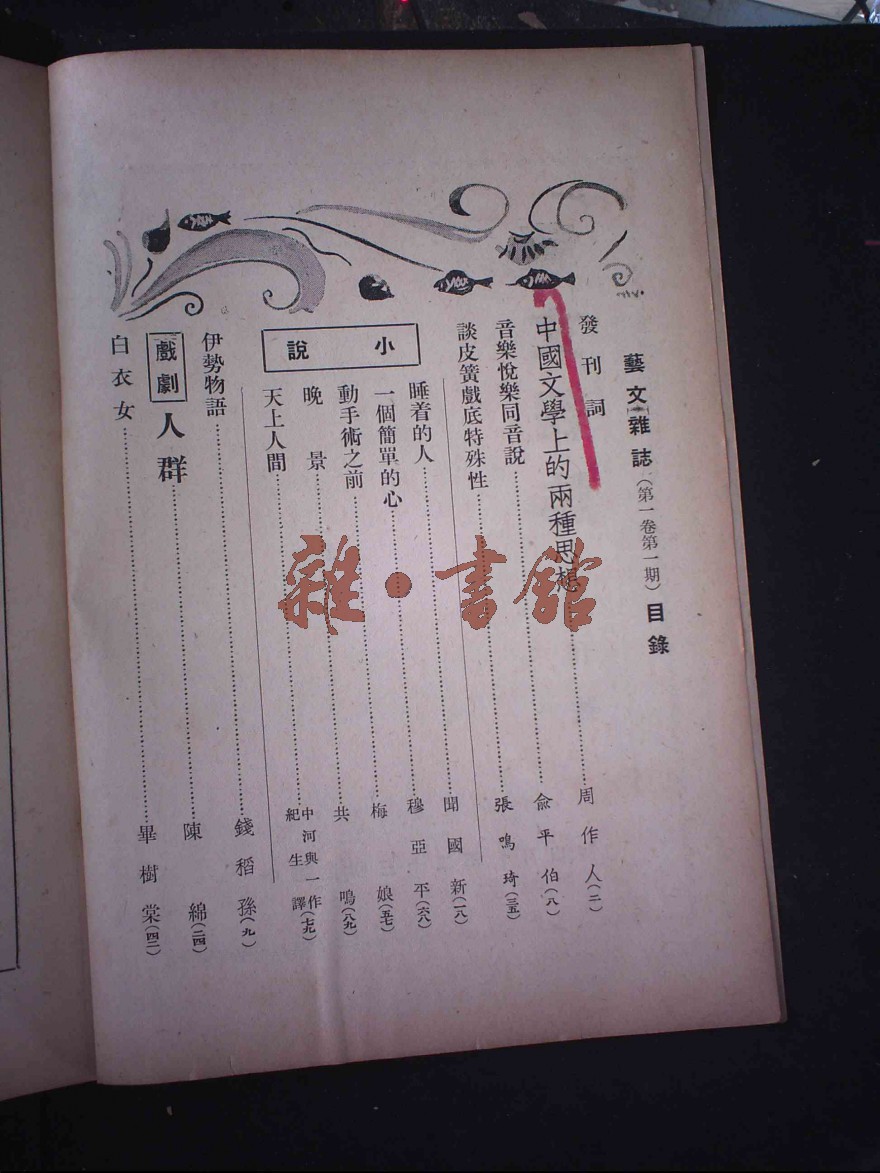 藝文雜誌(第一卷第一期)目錄
發刊詞
中國文學上的兩種思想……周作人(二)
音樂悅樂同音說……俞平伯(八)
談皮簧戲底特殊性……張鳴琦(三五)
小說
睡着的人……聞國新(一八)
一個簡單的心……穆亞平(六八)
動手術之前……梅娘(五七)
晚景……共鳴(八九)
天上人間……中河與一作 紀生譯(七九)
伊勢物語……錢稻孫(九)
戲劇
人群……陳綿(二四)
白衣女……畢樹棠(四二)
雜·書館